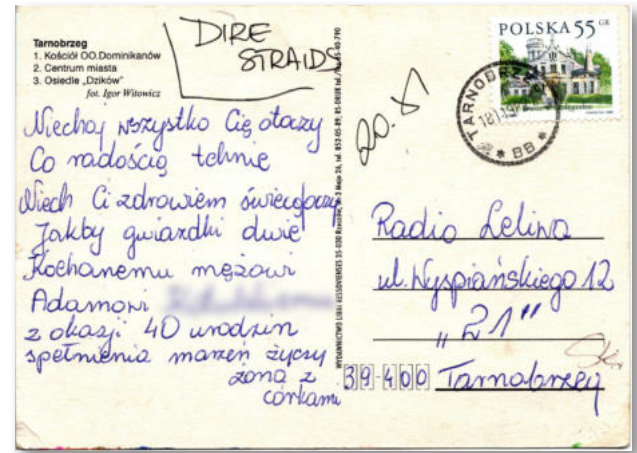 Tarnobrzeg
1. Kościół OO.Dominikanów
2. Centrum miasta
3. Osiedle „Dzików”
fot. Igor Witowicz
DIRE
STRAIDS
Niechaj wszystko Cię otaczy
Co radością tchnie
Niech Ci zdrowiem świecą oczy
Jakby gwiazdki dwie
Kochanemu mężowi
Adamowi
z okazji 40 urodzin
spełnienia marzeń życzy
żona z
córkami
20.
POLSKA 55 GR
TARNOBRZEG
* BB *
Radio Leliwa
ul. Wyspiańskiego 12
„21”
39-400 Tarnobrzeg